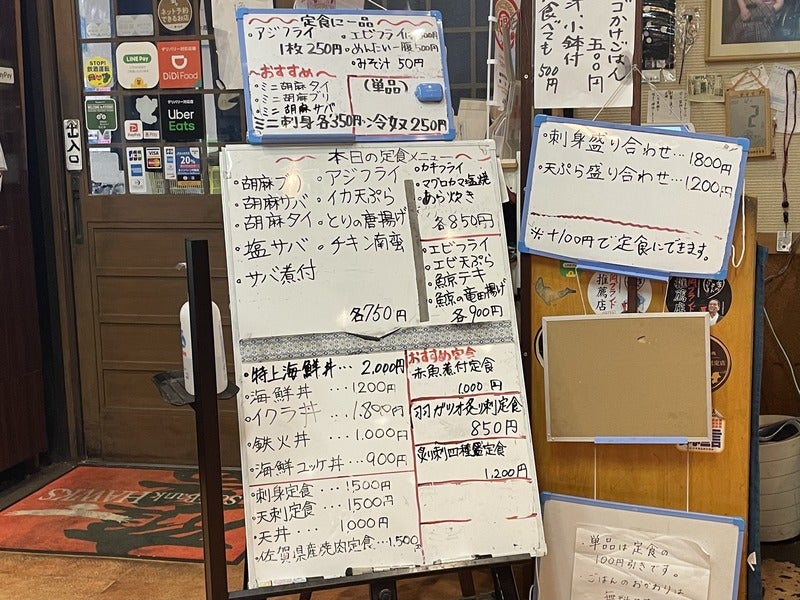 定食に一品
・アジフライ
1枚 250円
・エビフライ
・めんたい一腹 500円
・みそ汁 50円
～おすすめ～
・ミニ胡麻タイ
・ミニ胡麻ブリ
・ミニ胡麻サバ
ミニ刺身 各350円
(単品)
冷奴 250円
ごはん
五〇〇円
小鉢付
食べても
500円
・刺身盛り合わせ…1800円
・天ぷら盛り合わせ…1200円
※+100円で定食にできます。
本日の定食メニュー
・胡麻ブリ
・胡麻サバ
・胡麻タイ
・塩サバ
・サバ煮付
・アジフライ
・イカ天ぷら
・とりの唐揚げ
・チキン南蛮
各750円
・カキフライ
・マグロカマ塩焼
・あら炊き
各850円
・エビフライ
・エビ天ぷら
・鯨テキ
・鯨の竜田揚げ
各900円
・特上海鮮丼…2,000円
・海鮮丼…1200円
・イクラ丼…1,800円
・鉄火丼…1,000円
・海鮮ユッケ丼…900円
・刺身定食…1500円
・天刺定食…1500円
・天丼…1000円
・佐賀県産焼肉定食…1,500
おすすめ定食
赤魚煮付定食
1000円
炙り刺定食
850円
炙り刺四種盛定食
1,200円
・単品は定食の
100円引きです。
・ごはんのおかわりは
無料
出入口
STOP!
飲酒運転
LINE Pay
DiDi Food
Uber
Eats
PayPay
VISA
SoftBank HAWKS
推薦店